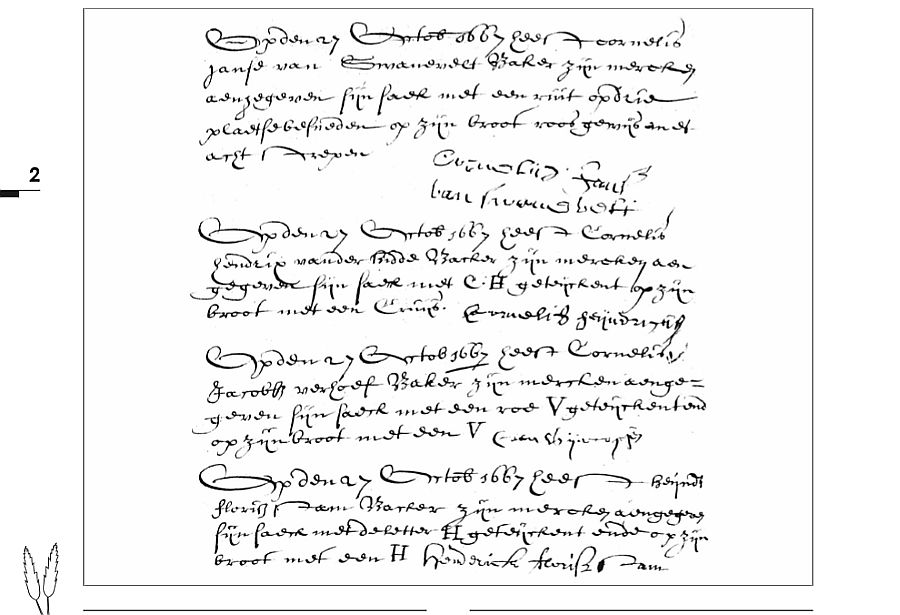 Opden 27 Octob 1667 heeft cornelis
janse van Swanevelt Baker zijn mercken
aengegeven sijn saek met een ruit op drie
plaetse besneden op zijn broot roosgewijs en et
acht strepen
2
Cornelis Jans
van swanevelt
Opden 27 Octob 1667 heeft Cornelis
hendrix vander linde Backer zijn mercken aen
gegeven sijn saek met C.H geteijckent op zijn
broot met een Cruijs. Cornelis heijndrick
Opden 27 Octob 1667 heeft Cornelis
Jacobsz verhoef Baker zijn mercken aenge=
geven sijn saeck met een roe V geteijckent end
op zijn broot met een V
Opden 27 Octob 1667 heeft heijndr
floris Dam Backer zijn mercken aengegeven
sijn saeck met de letter H geteijckent ende op zijn
broot met een H Hendrick florisz Dam